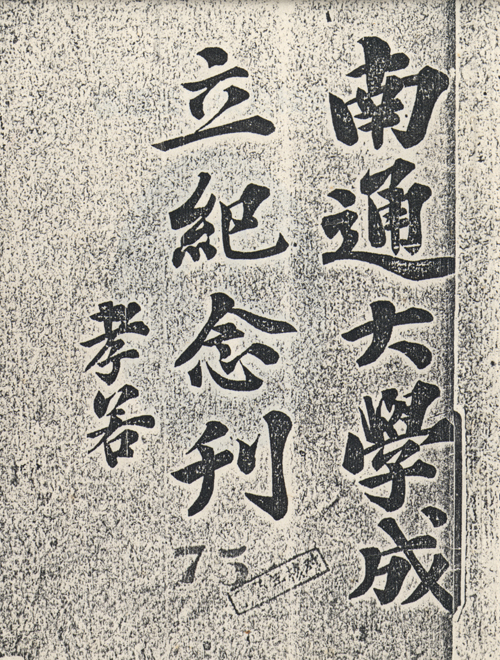 南通大學成
立紀念刊
孝若
75